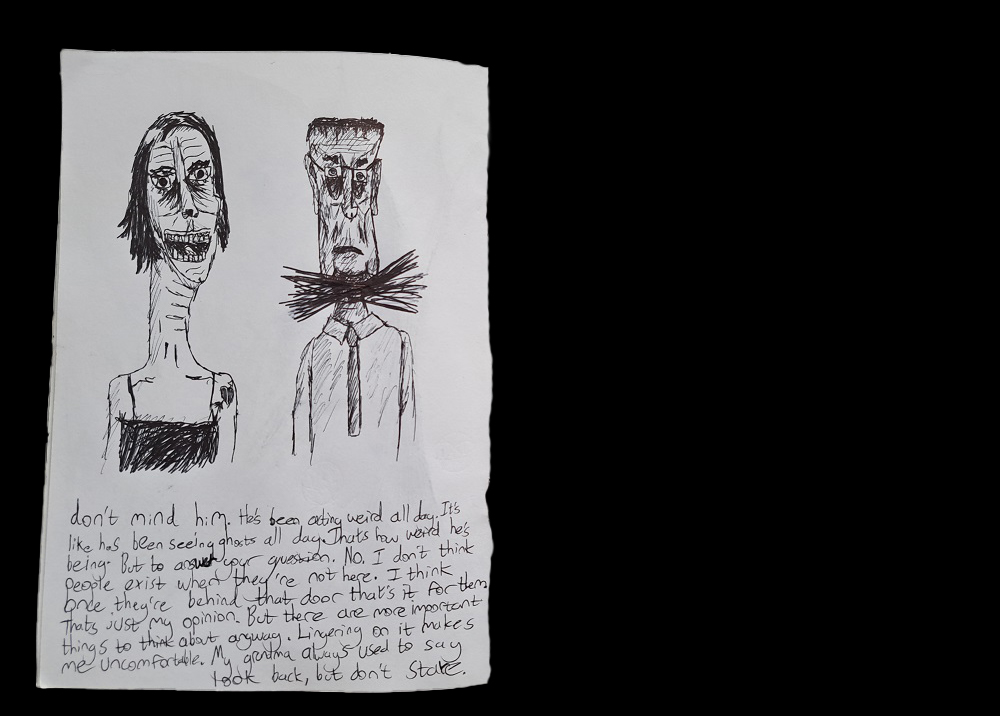 don't mind him. He's been acting weird all day. It's
like he's been seeing ghosts all day. Thats how weird he's
being. But to answer your question. No. I don't think
people exist when they're not here. I think
once they're behind that door that's it for them
Thats just my opinion. But there are more important
things to think about anyway. Lingering on it makes
me uncomfortable. My grandma always used to say
look back, but don't stare.